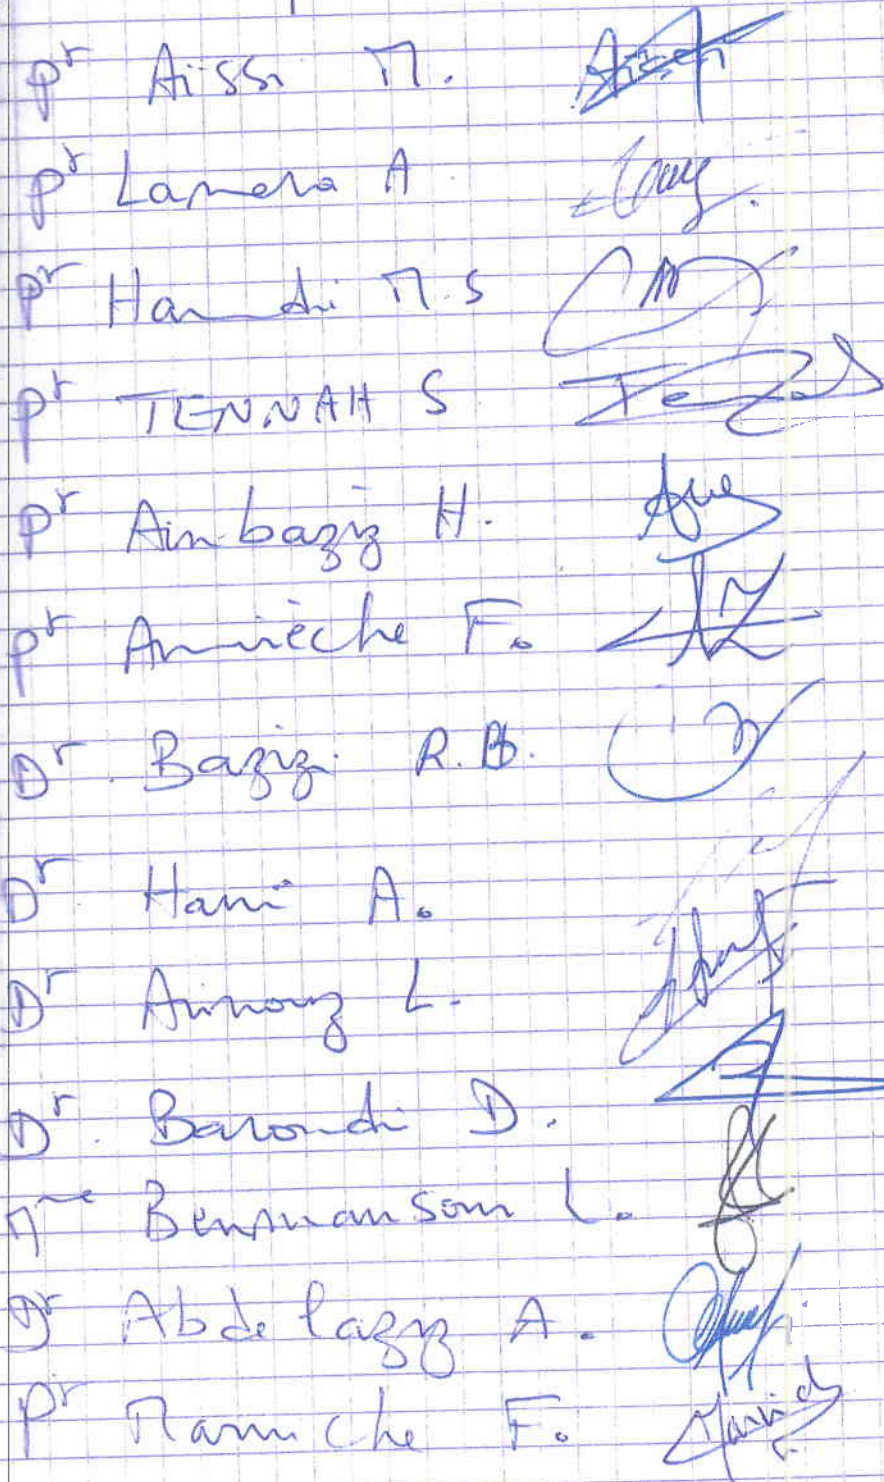 Pr Aissi M.
Pr Lamara A
Pr Hamdi M.S
Pr TENNAH S
Pr Ainbaziz H.
Pr Amirèche F.
Dr. Bazizi R.B.
Dr Hani A.
Dr Aimouz L.
Dr. Baroudi D.
Mme Benmansour L.
Dr Abdelaziz A.
Pr Marniche F.